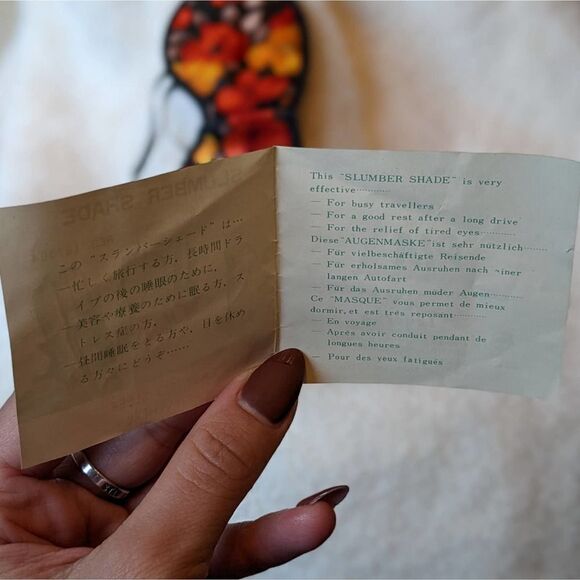 この“スランバーシェード”は…
—忙しく旅行する方、長時間ドラ
イブの後の睡眠のために、
—美容や療養のために眠る方、ス
トレス症の方、
—昼間睡眠をとる方や、目を休め
る方々にどうぞ……
SLUMBER SHADE
This “SLUMBER SHADE” is very
effective…………
— For busy travellers
— For a good rest after a long drive
— For the relief of tired eyes…………
Diese “AUGENMASKE” ist sehr nützlich………
— Für vielbeschäftigte Reisende
— Für erholsames Ausruhen nach einer
langen Autofart
— Für das Ausruhen müder Augen…………
Ce “MASQUE” vous permet de mieux
dormir, et est trés reposant……
— En voyage
— Aprés avoir conduit pendant de
longues heures
— Pour des yeux fatigués